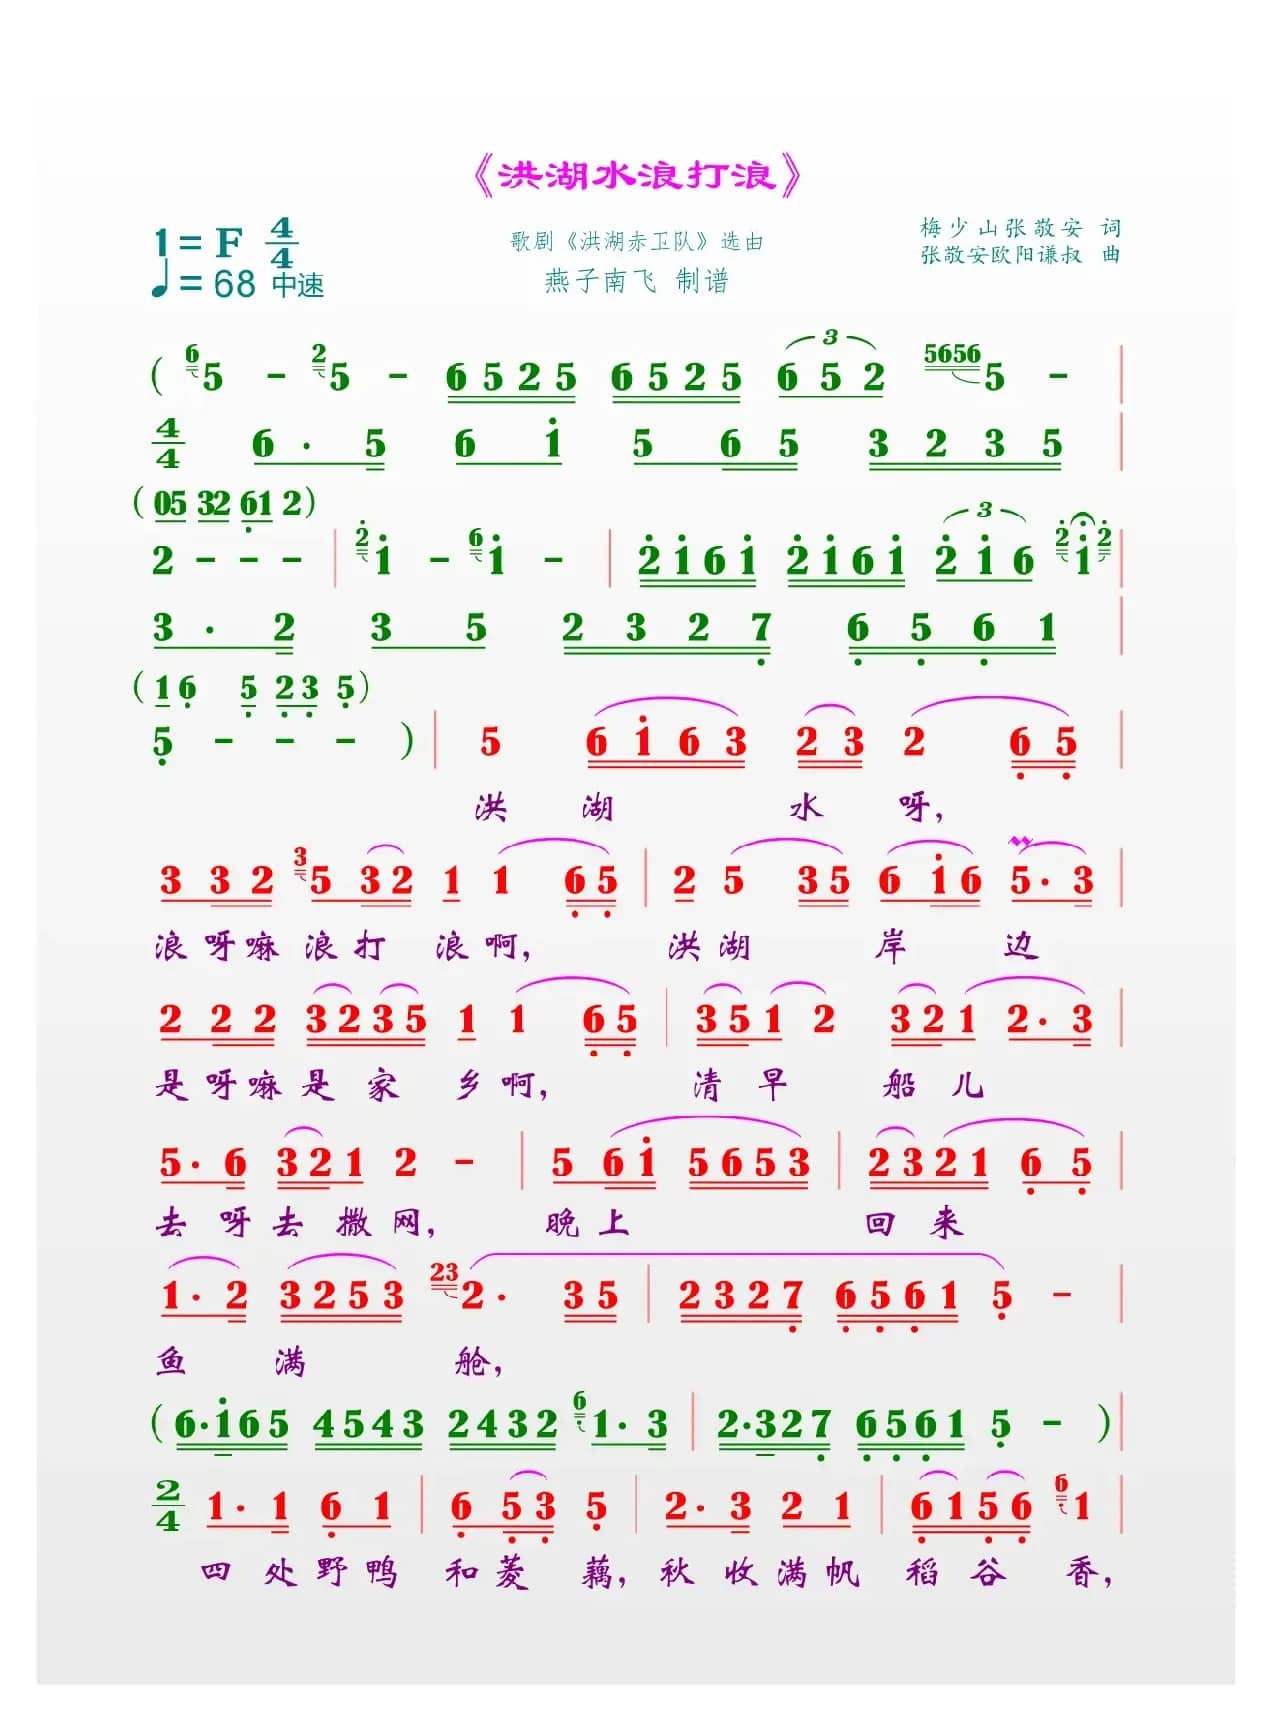 《洪湖水浪打浪》
1=F 4/4
♩=68 中速
歌剧《洪湖赤卫队》选曲
燕子南飞 制谱
梅少山张敬安 词
张敬安欧阳谦叔 曲
( 6 5 - 2 5 - 6 5 2 5 6 5 2 5 3 6 5 2 5656 5 -
4/4 6 · 5 6 1 5 6 5 3 2 3 5
(05 32 61 2)
2 - - - 2 1 - 6 1 - 2 1 6 1 2 1 6 1 3 2 1 6 2 1 2
3 · 2 3 5 2 3 2 7 6 5 6 1
(1 6 5 2 3 5)
5 - - - ) 5 6 1 6 3 2 3 2 6 5
洪 湖 水 呀,
3 3 2 3 5 3 2 1 1 6 5 2 5 3 5 6 1 6 5 · 3
浪 呀嘛 浪打 浪啊, 洪湖 岸 边
2 2 2 3 2 3 5 1 1 6 5 3 5 1 2 3 2 1 2 · 3
是 呀嘛 是 家 乡啊, 清 早 船 儿
5 · 6 3 2 1 2 - 5 6 1 5 6 5 3 2 3 2 1 6 5
去 呀去 撒网, 晚上 回 来
1 · 2 3 2 5 3 23 2 · 3 5 2 3 2 7 6 5 6 1 5 -
鱼 满 舱,
( 6 · 1 6 5 4 5 4 3 2 4 3 2 6 1 · 3 2 · 3 2 7 6 5 6 1 5 - )
2/4 1 · 1 6 1 6 5 3 5 2 · 3 2 1 6 1 5 6 6 1
四 处 野 鸭 和菱 藕, 秋 收 满帆 稻谷 香,